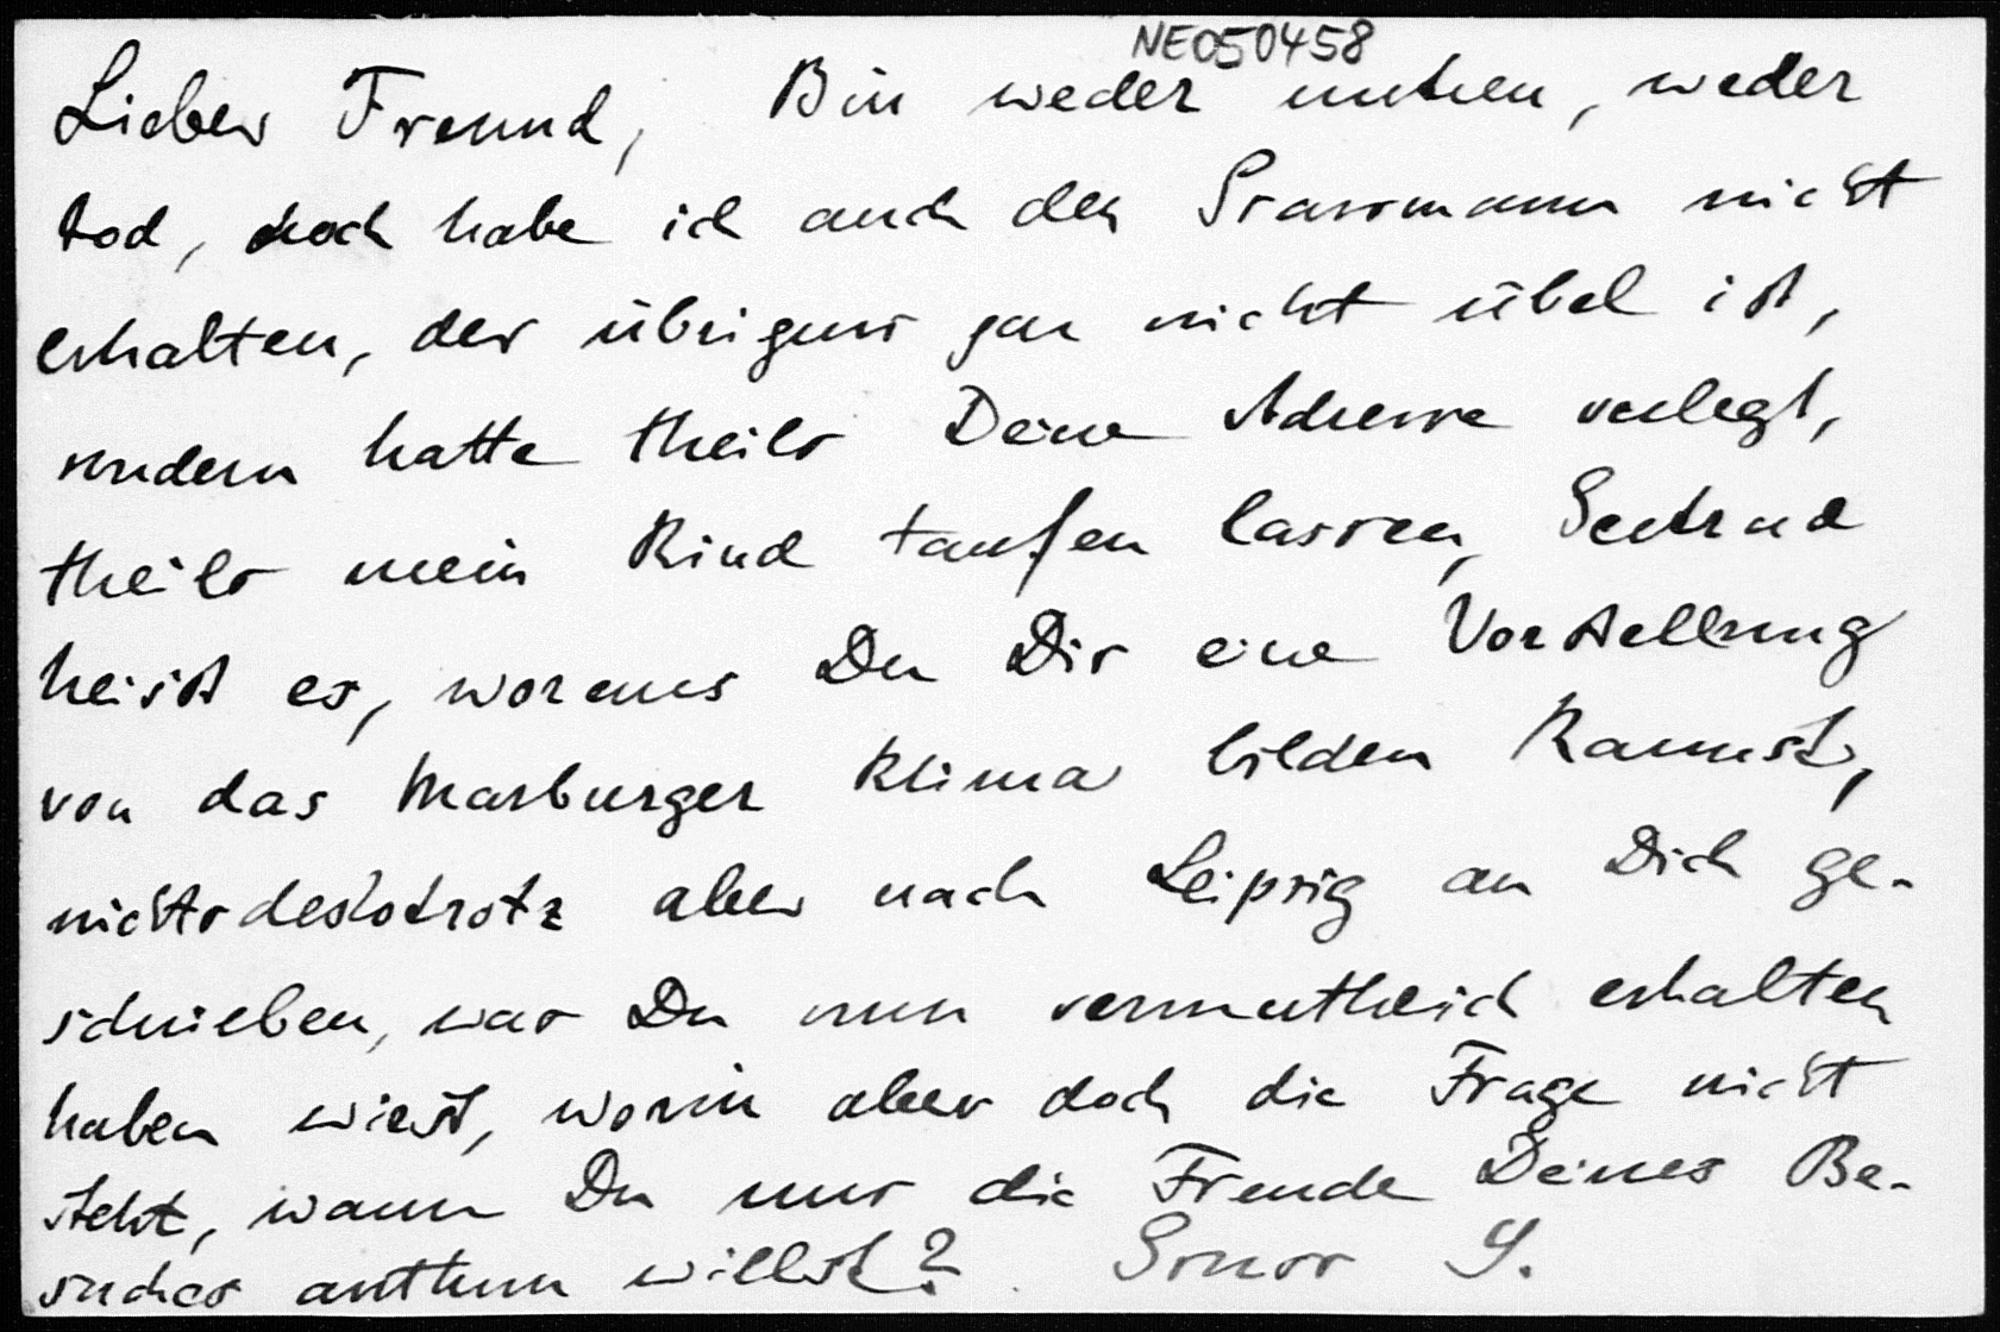 NE050458
Lieber Freund, Bin weder unten, weder
tod, noch habe ich auch den Grassmann nicht
erhalten, der übrigens gar nicht übel ist,
sondern hatte theils Deine Adresse verlegt,
theils mein Kind taufen lassen, Gertrud
heisst es, woraus Du Dir eine Vorstellung
von das Marburger Klima bilden kannst,
nichtsdestotrotz aber nach Leipzig an Dich ge-
schrieben, was Du nun vermuthlich erhalten
haben wirst, worin aber doch die Frage nicht
steht, wann Du uns die Freude Deines Be-
suches anthun willst? Gruss